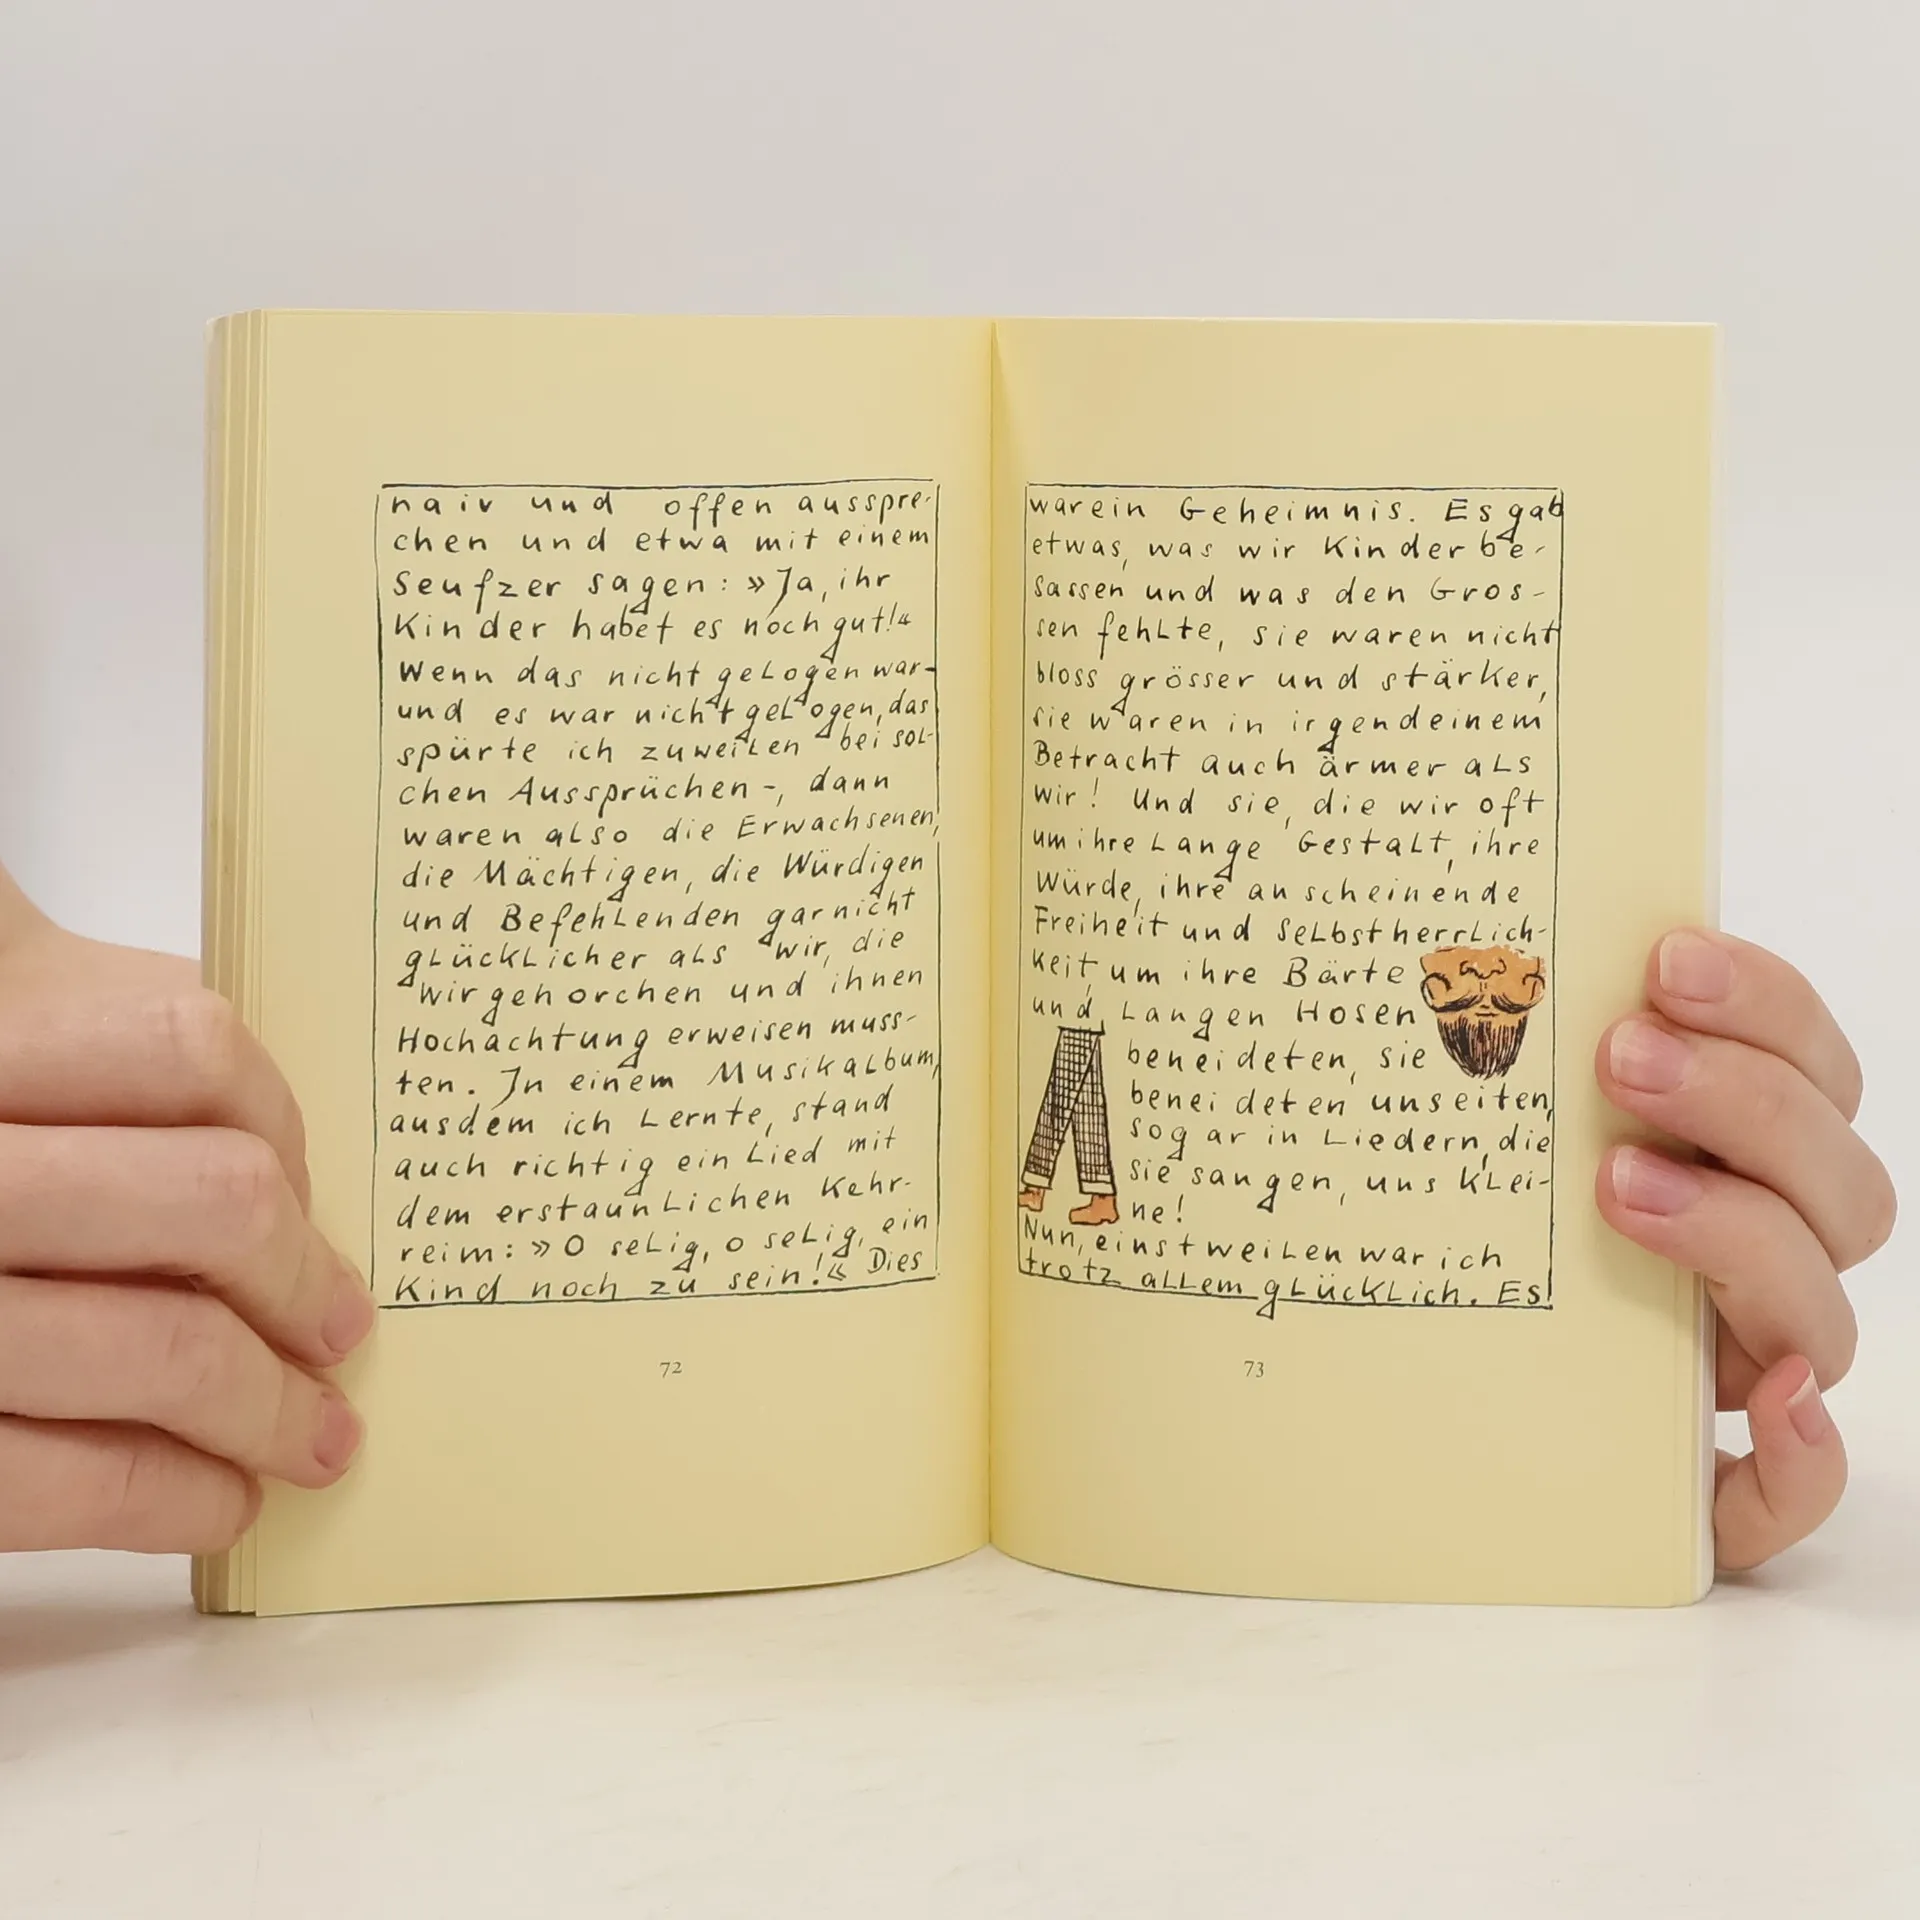 naiv und offen ausspre-
chen und etwa mit einem
Seufzer sagen: »Ja, ihr
Kinder habet es noch gut!«
Wenn das nicht gelogen war-
und es war nicht gelogen, das
spürte ich zuweilen bei sol-
chen Aussprüchen-, dann
waren also die Erwachsenen,
die Mächtigen, die Würdigen
und Befehlenden gar nicht
glücklicher als wir, die
wir gehorchen und ihnen
Hochachtung erweisen muss-
ten. In einem Musikalbum,
aus dem ich lernte, stand
auch richtig ein Lied mit
dem erstaunlichen Kehr-
reim: »O selig, o selig, ein
Kind noch zu sein!« Dies
72
war ein Geheimnis. Es gab
etwas, was wir Kinder be-
sassen und was den Gros-
sen fehlte, sie waren nicht
bloss grösser und stärker,
sie waren in irgendeinem
Betracht auch ärmer als
wir! Und sie, die wir oft
um ihre lange Gestalt, ihre
Würde, ihre anscheinende
Freiheit und Selbstherrlich-
keit, um ihre Bärte
und langen Hosen
beneideten, sie
beneideten unseiten,
sogar in Liedern, die
sie sangen, uns Klei-
ne!
Nun, einstweilen war ich
trotz allem glücklich. Es
73